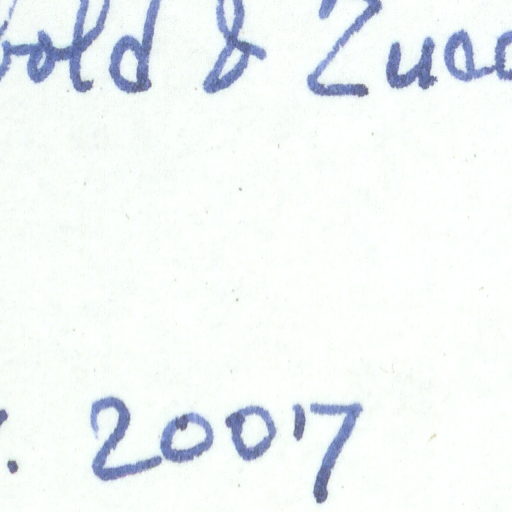 bold & Zucc
. 2007